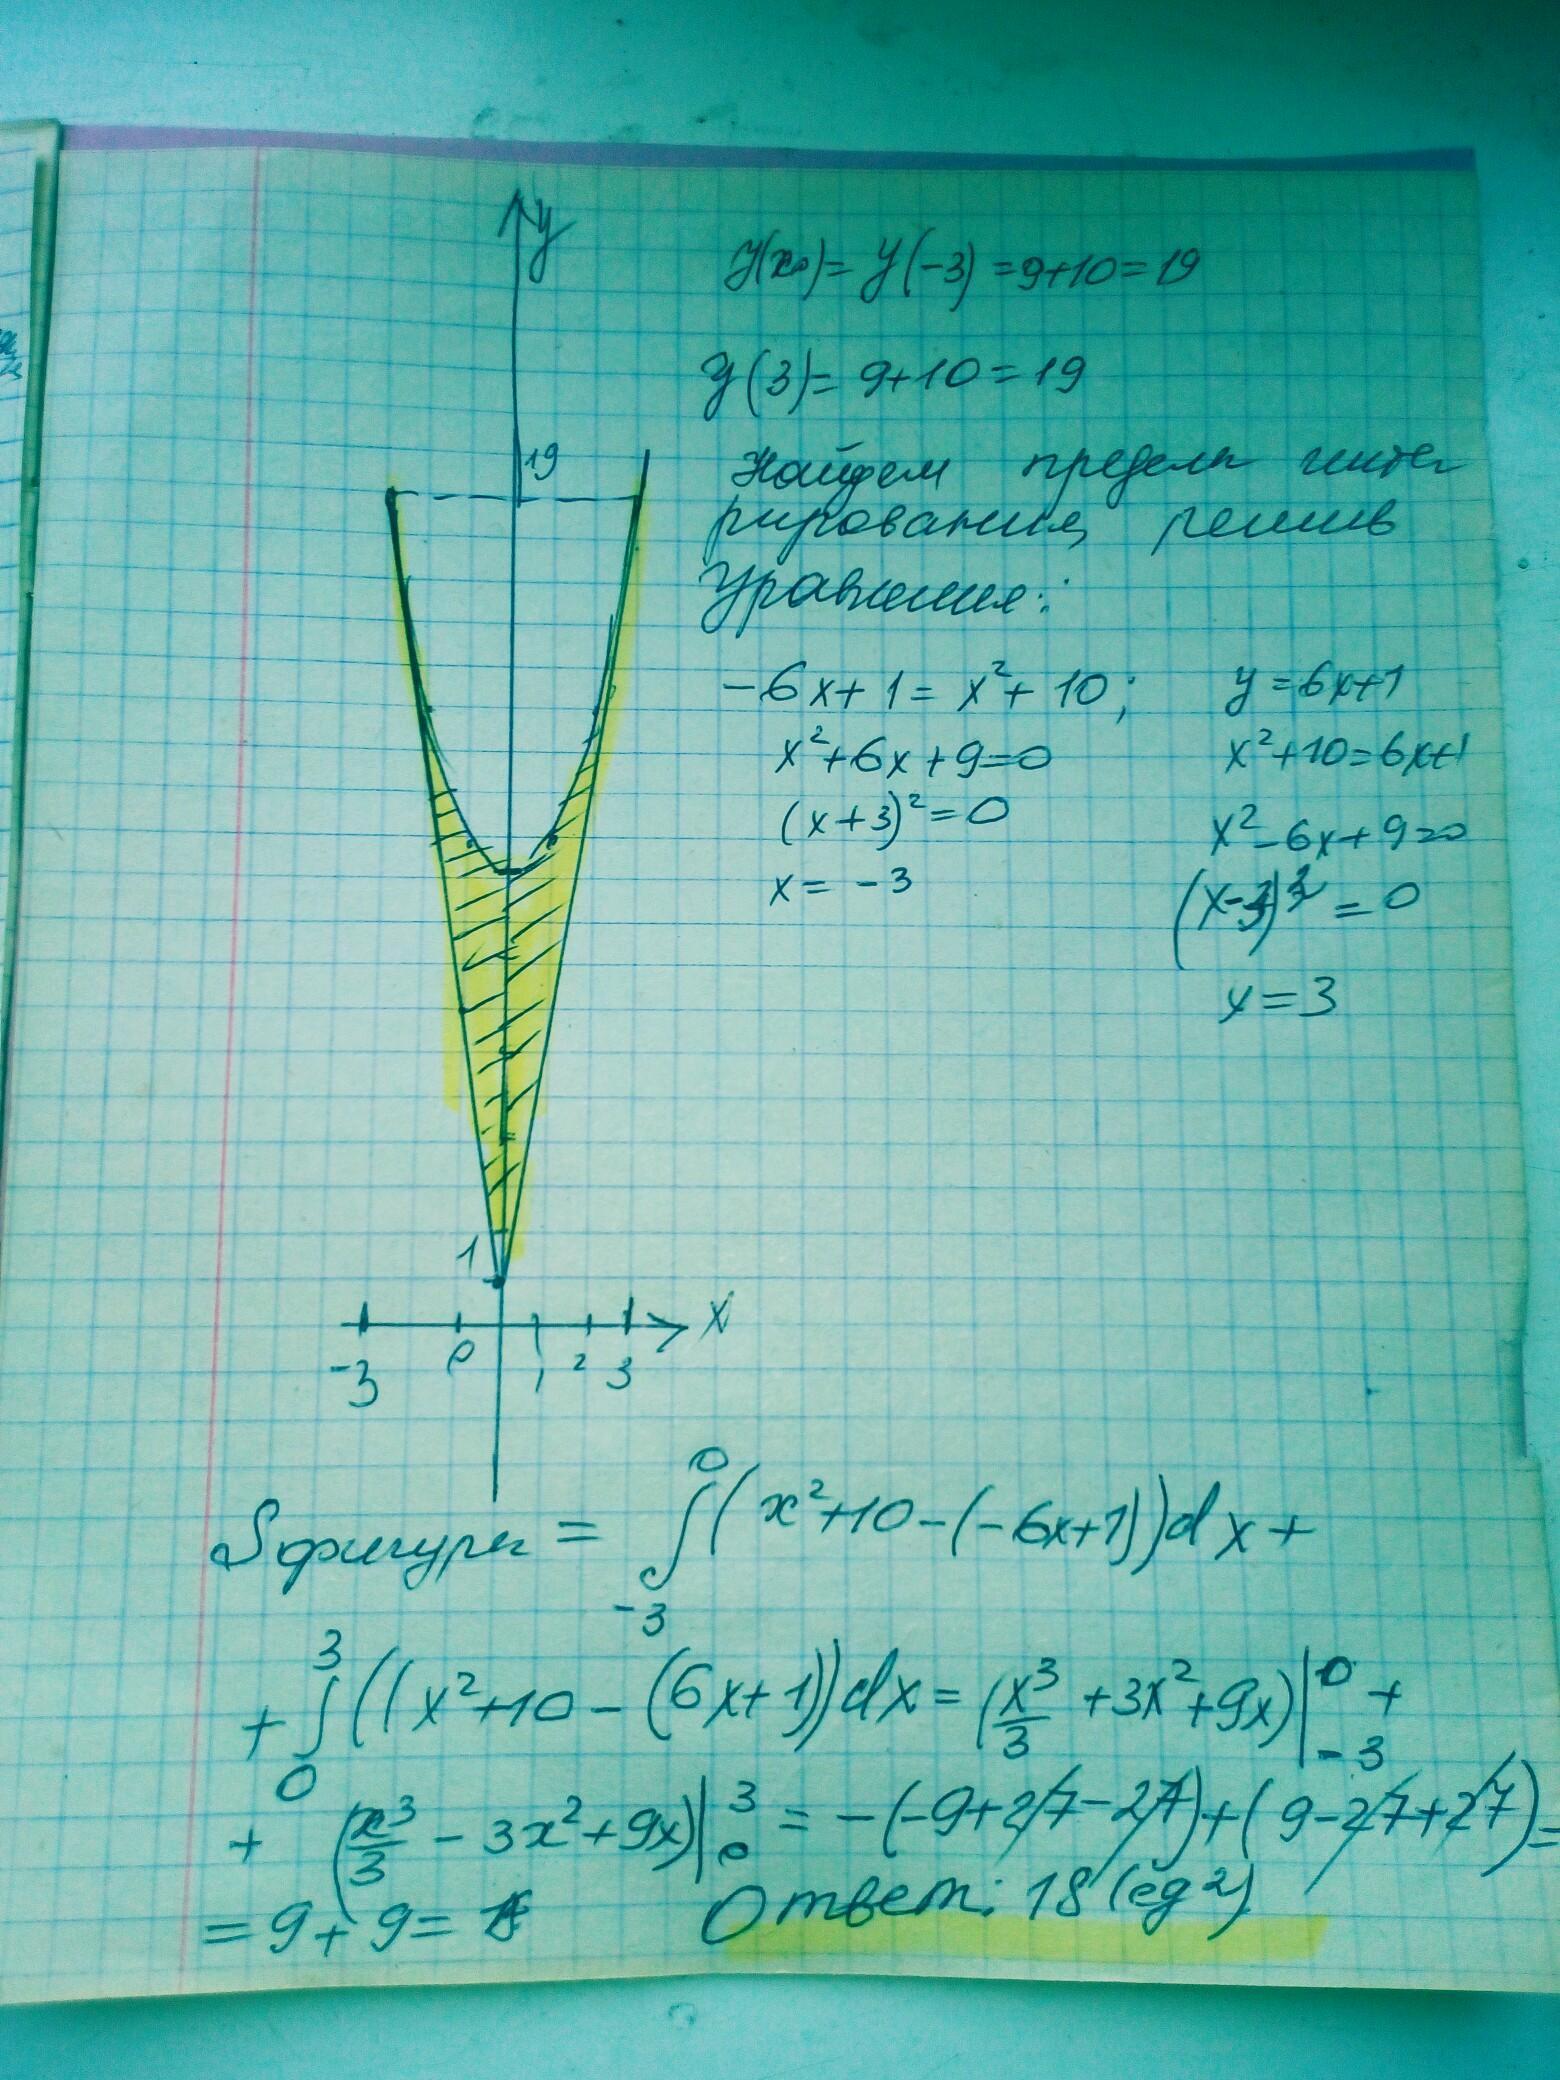 y
y(x₀) = y(-3) = 9+10 = 19
y(3) = 9+10 = 19
19
Найдем пределы интег
рирования, решив
уравнения:
-6x+1 = x²+10; y = 6x+1
x²+6x+9=0 x²+10=6x+1
(x+3)²=0 x²-6x+9=0
x = -3 (x-3)² = 0
x = 3
1
x
-3 0 1 2 3
Sфигуры = ∫₋₃⁰ (x²+10-(-6x+1))dx +
+ ∫₀³ ((x²+10-(6x+1))dx = (x³/3 + 3x²+9x)|₋₃⁰ +
+ (x³/3 - 3x²+9x)|₀³ = -(-9+27-27)+(9-27+27) =
= 9+9 = 18 Ответ: 18 (ед²)